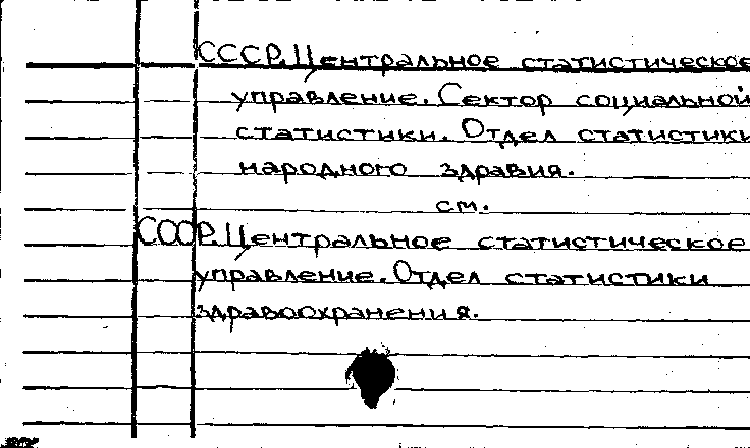 СССР. Центральное статистическое
управление. Сектор социальной
статистики. Отдел статистики
народного здравия.
см.
СССР. Центральное статистическое
управление. Отдел статистики
здравоохранения.